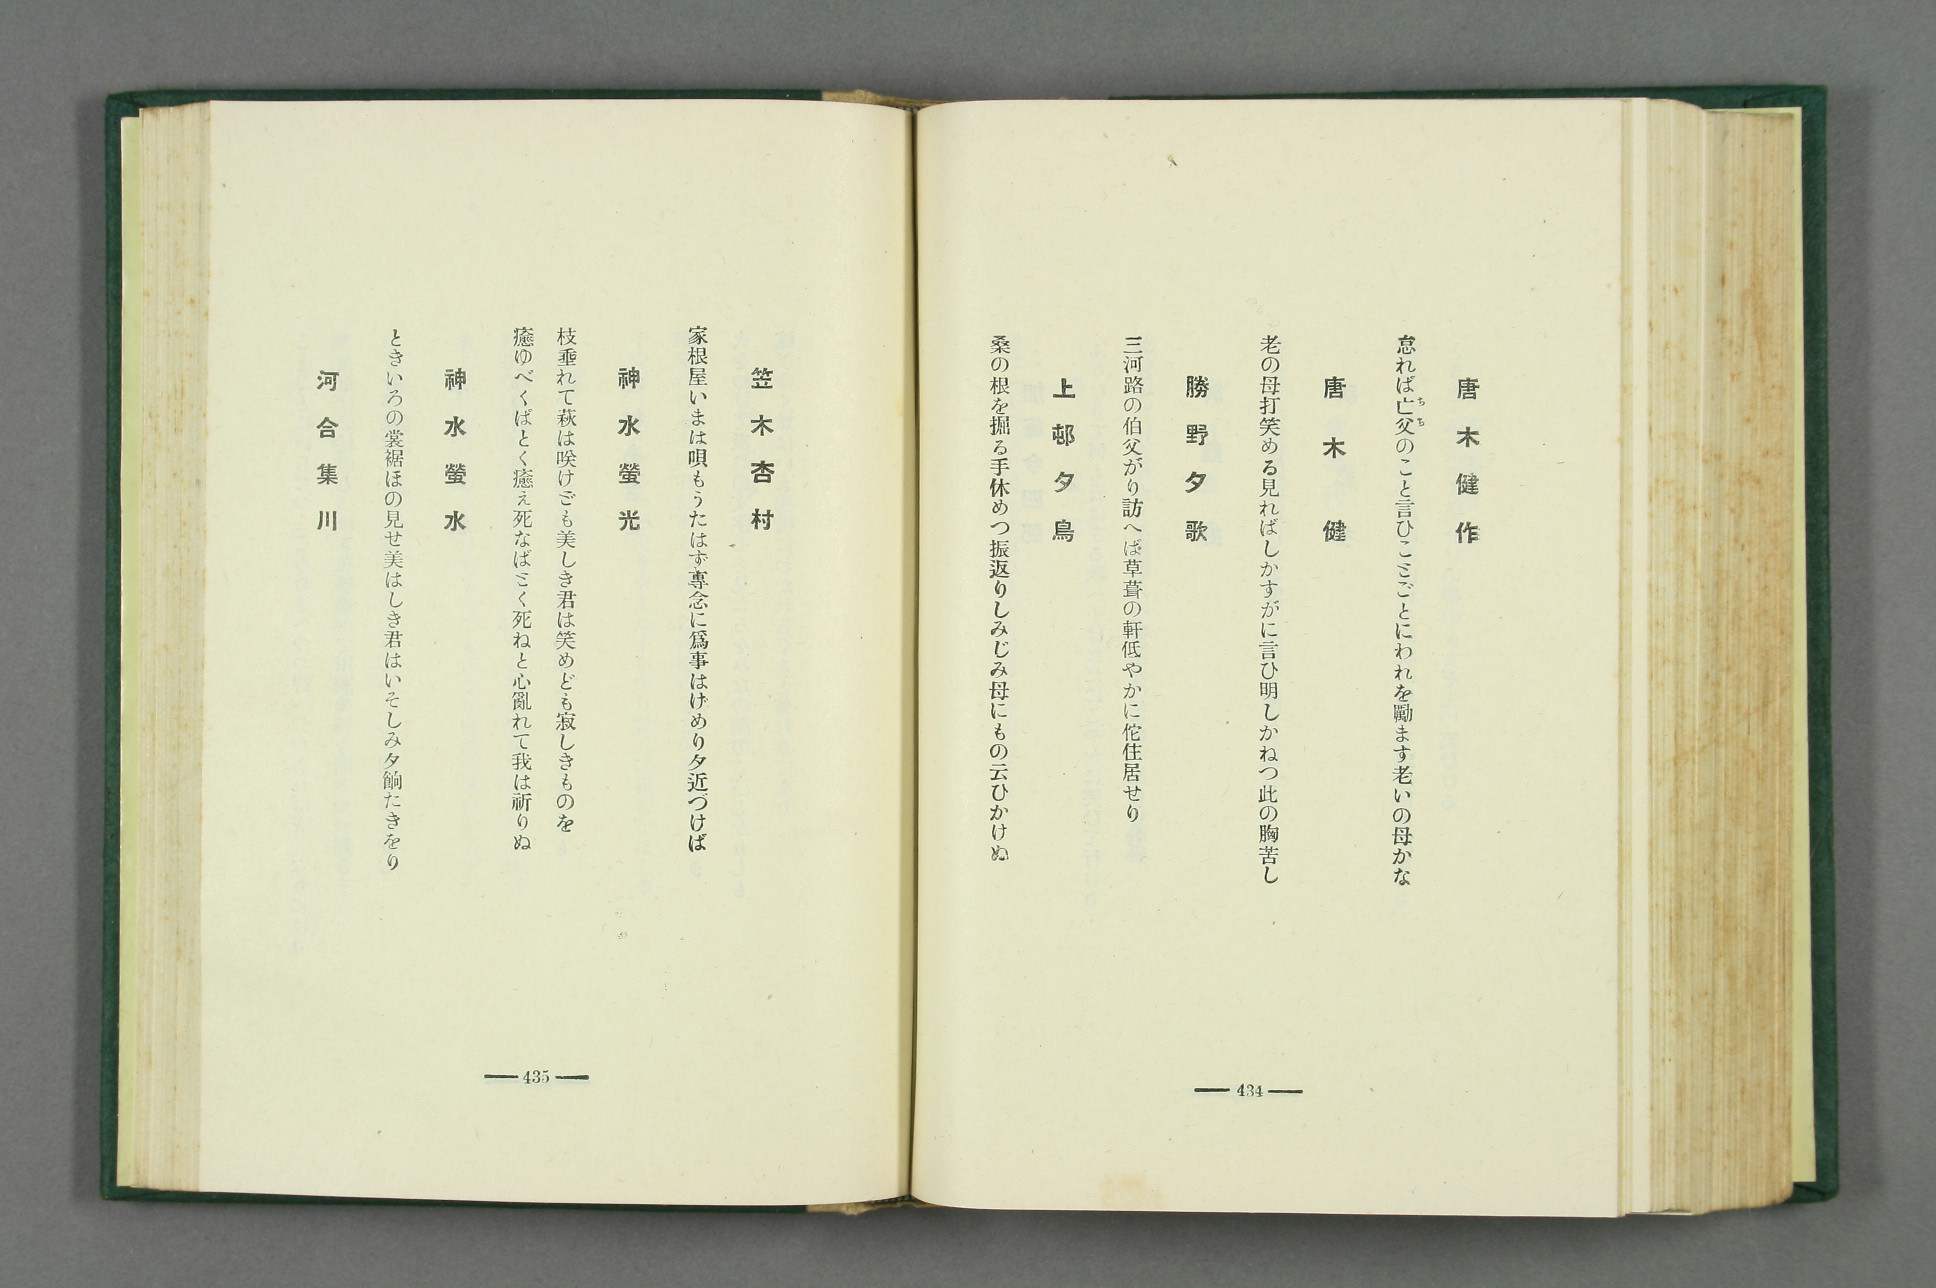 唐木健作
怠れば亡父のこと言ひことごとにわれを勵ます老いの母かな
ちち
唐木健
老の母打笑める見ればしかすがに言ひ明しかねつ此の胸苦し
勝野夕歌
三河路の伯父がり訪へば草葺の軒低やかに佗住居せり
上邨夕鳥
桑の根を掘る手休めつ振返りしみじみ母にもの云ひかけぬ
434
笠木杏村
家根屋いまは唄もうたはず專念に爲事はげめり夕近づけば
神水螢光
枝垂れて萩は咲けども美しき君は笑めども寂しきものを
癒ゆべくばとく癒え死なばとく死ねと心亂れて我は祈りぬ
神水螢水
ときいろの裳裾ほの見せ美はしき君はいそしみ夕餉たきをり
河合集川
435